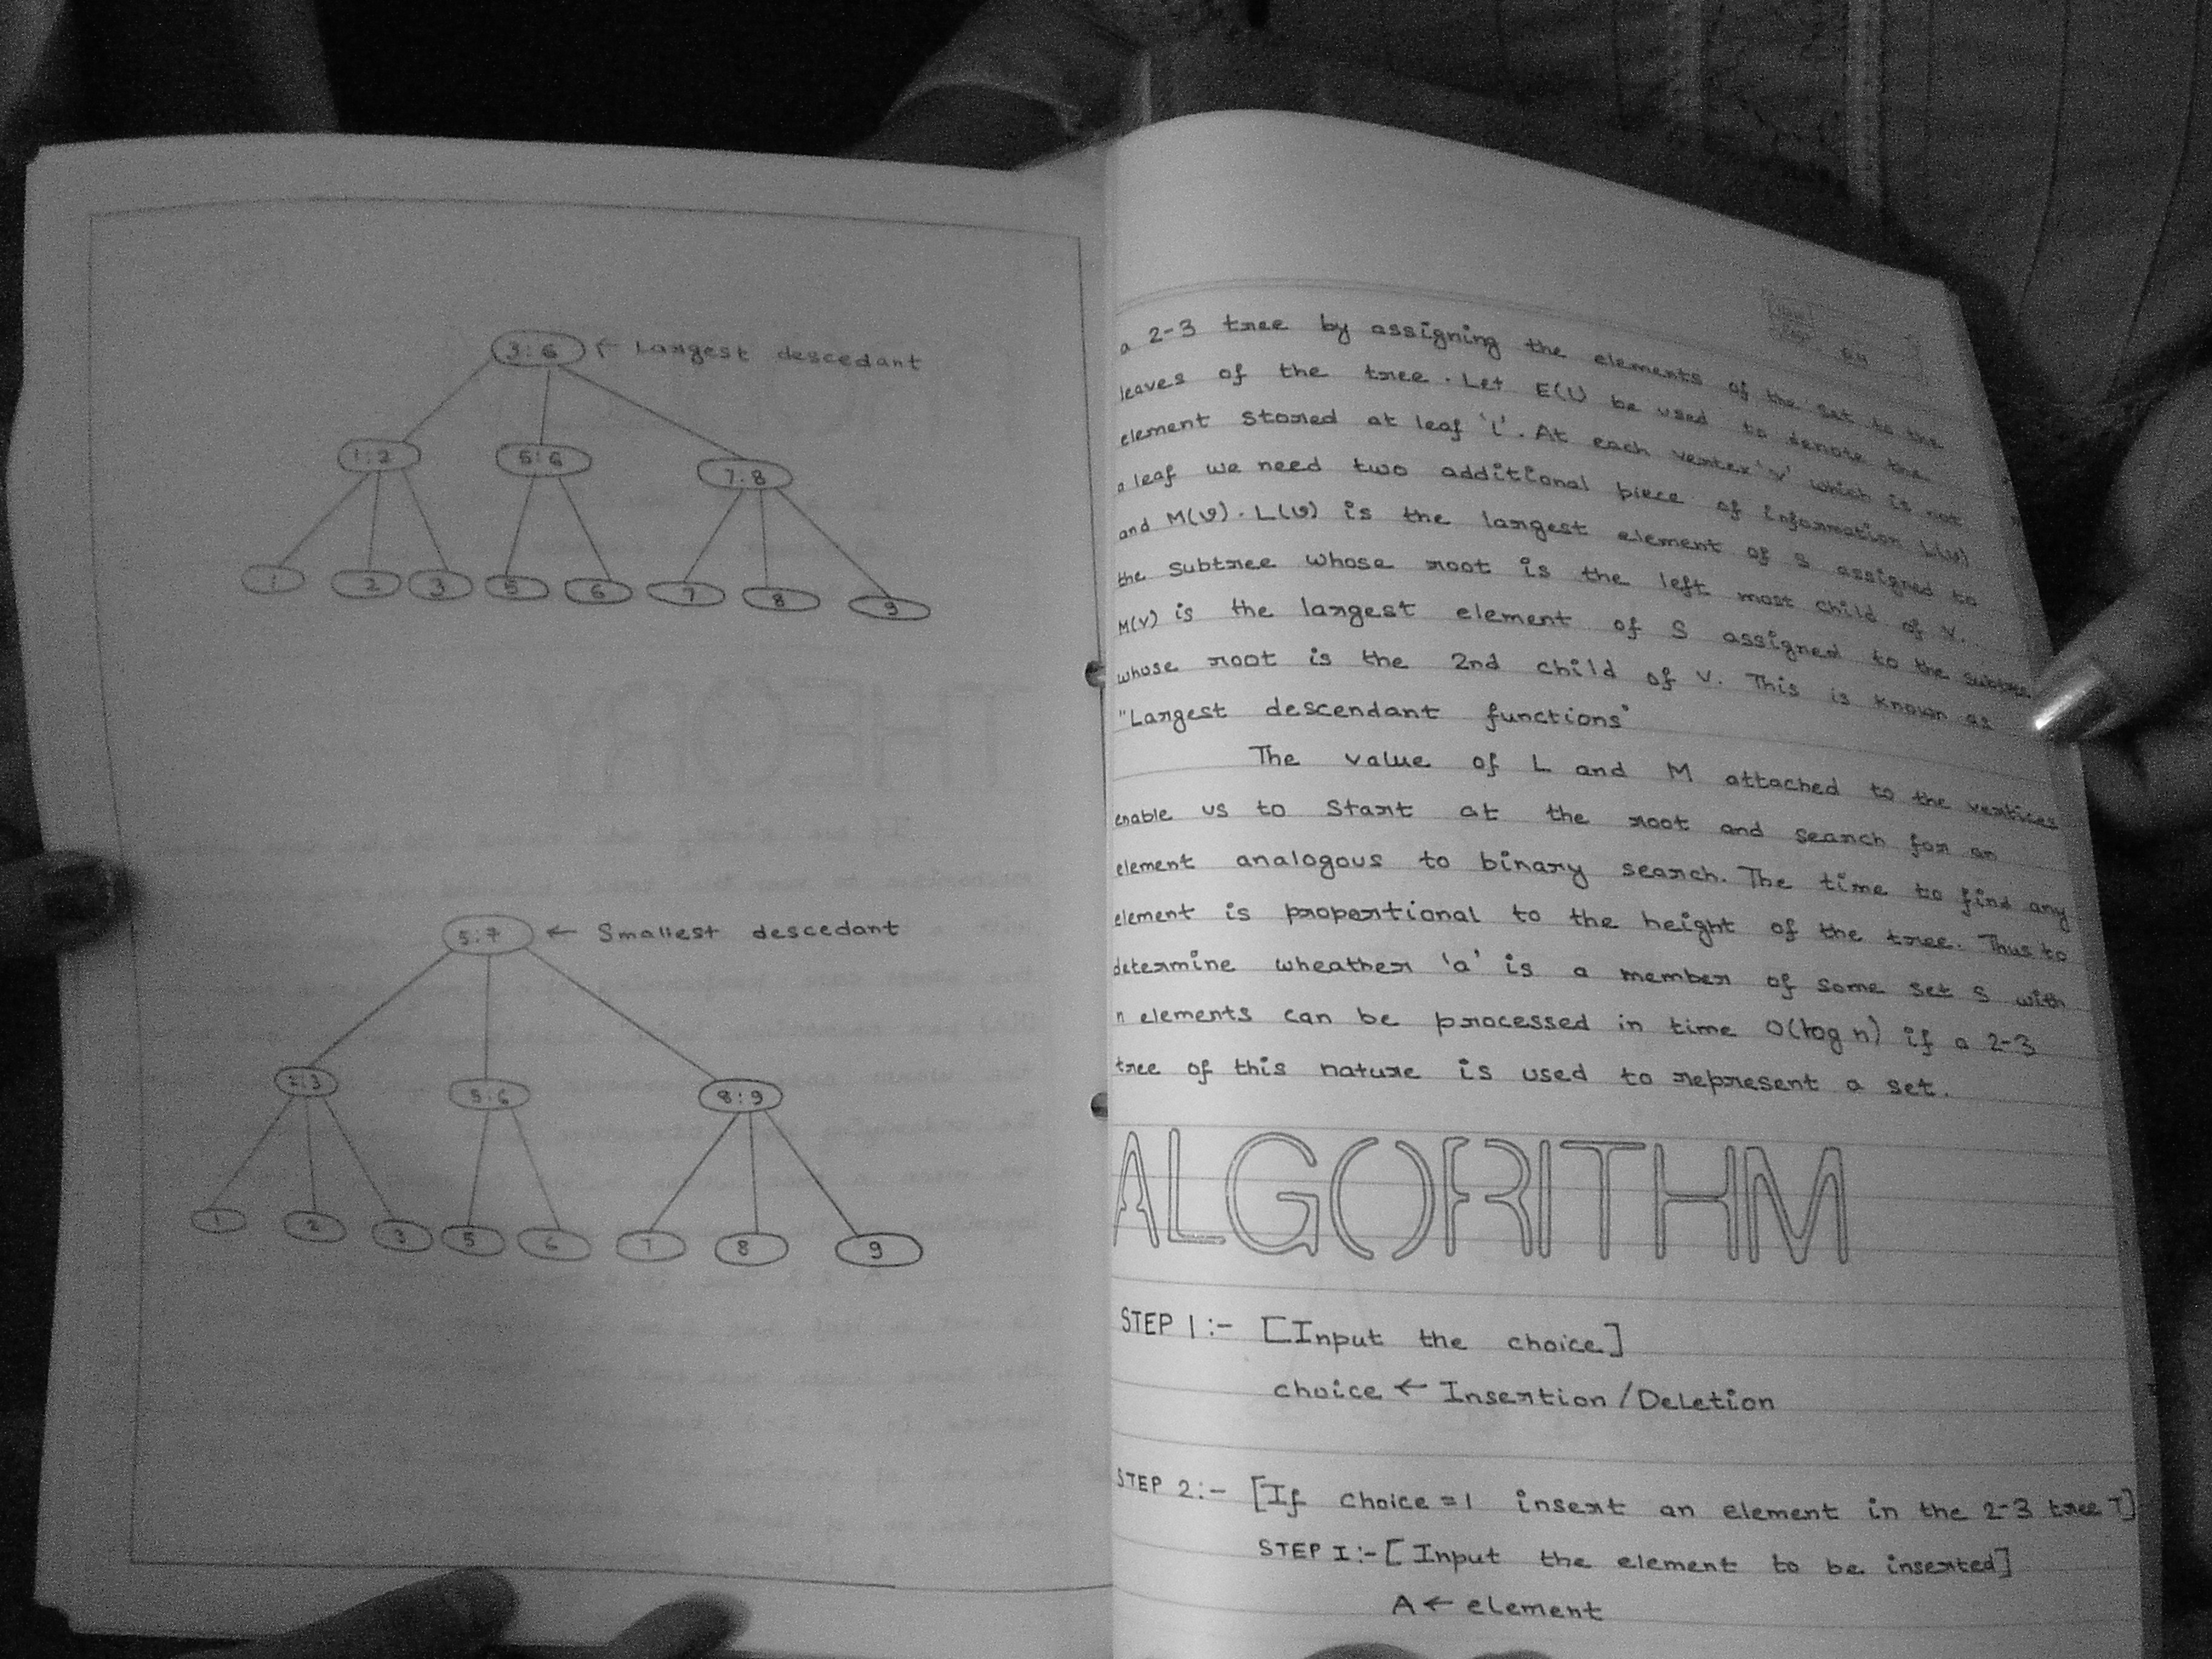 3:6 ← Largest descedant
1:2 5:6 7:8
1 2 3 5 6 7 8 9
5:7 ← Smallest descedant
2:3 5:6 8:9
1 2 3 5 6 7 8 9
a 2-3 tree by assigning the elements of the set to the
leaves of the tree. Let E(l) be used to denote the
element stored at leaf 'l'. At each vertex 'v' which is not
a leaf we need two additional piece of information L(v)
and M(v). L(v) is the largest element of S assigned to
the subtree whose root is the left most child of v.
M(v) is the largest element of S assigned to the subtree
whose root is the 2nd child of v. This is known as
"Largest descendant functions"
The value of L and M attached to the vertices
enable us to start at the root and search for an
element analogous to binary search. The time to find any
element is propertional to the height of the tree. Thus to
determine wheather 'a' is a member of some set S with
n elements can be processed in time O(log n) if a 2-3
tree of this nature is used to represent a set.
ALGORITHM
STEP 1:- [Input the choice]
choice ← Insertion/Deletion
STEP 2:- [If choice=1 insert an element in the 2-3 tree T]
STEP I:-[Input the element to be inserted]
A ← element